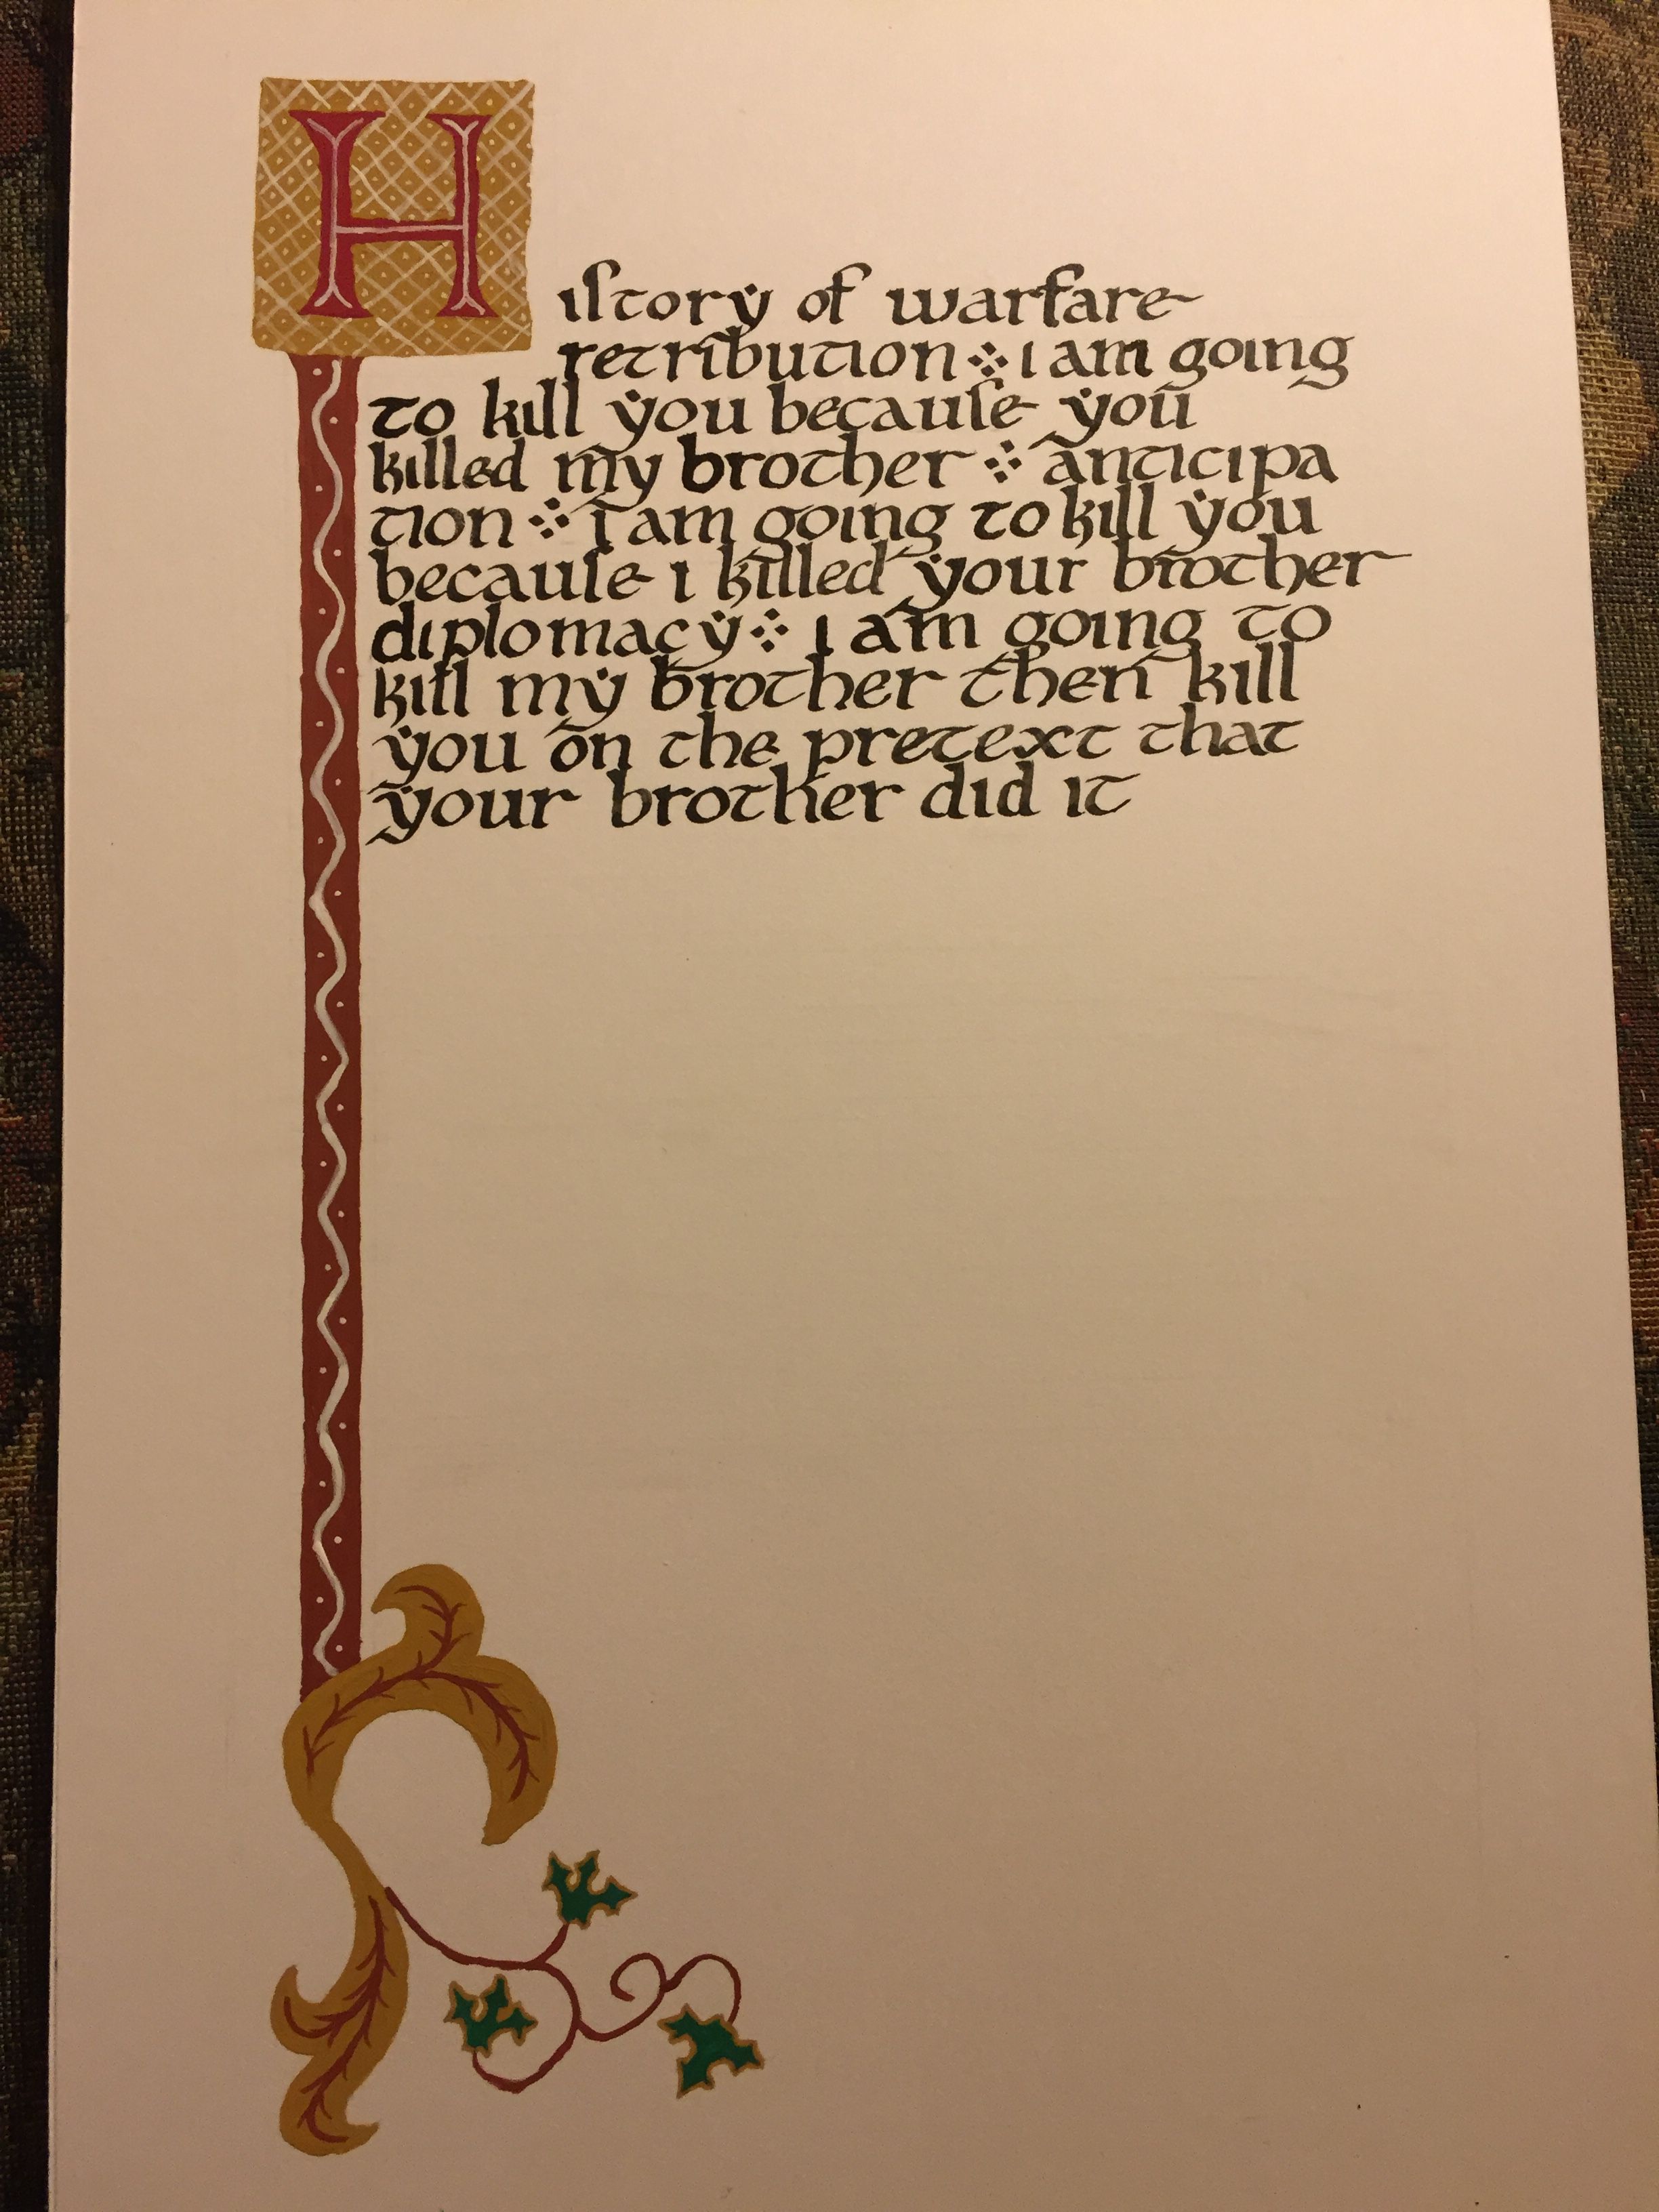 Hiſtory of warfare
retribution ⁘ i am going
to kill you becauſe you
killed my brother ⁘ anticipa
tion ⁘ i am going to kill you
becauſe i killed your brother
diplomacy ⁘ i am going to
kill my brother then kill
you on the pretext that
your brother did it